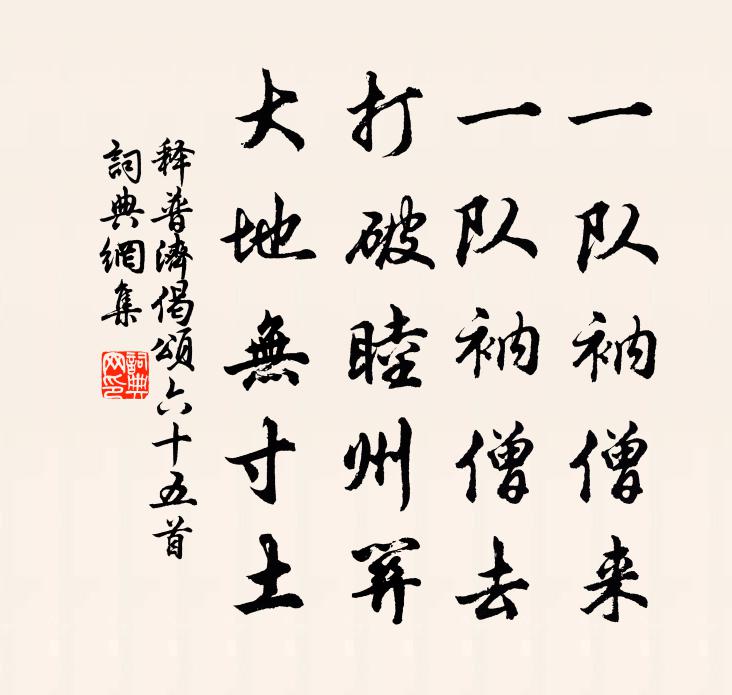 一队衲僧来
一队衲僧去
打破睦州關
大地無寸土
释普濟偈頌六十五首
詞典網集
詞典网印